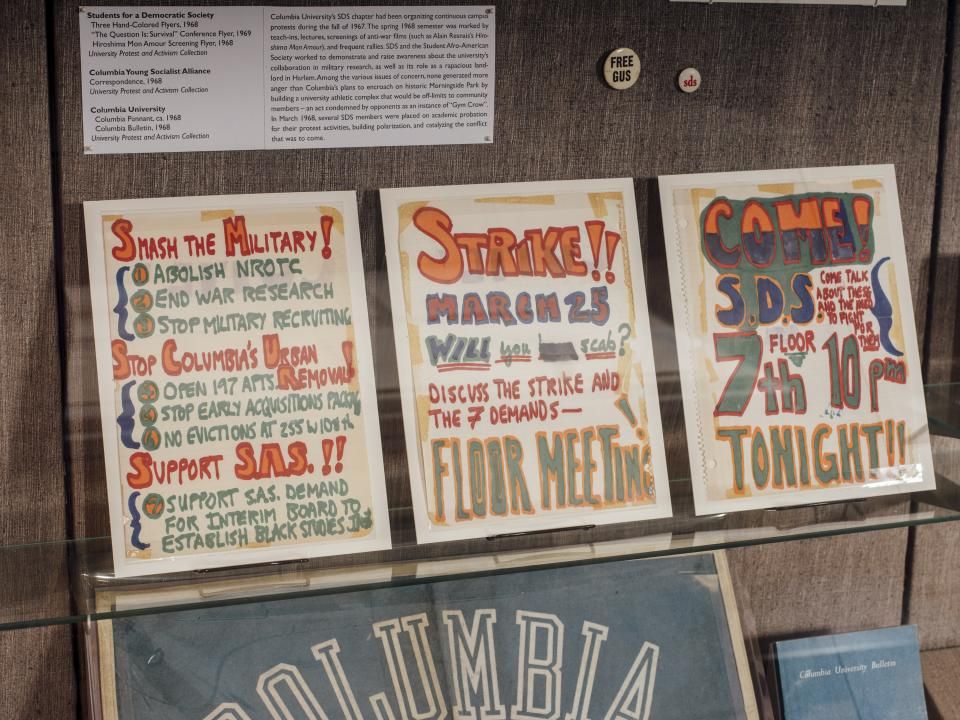 Students for a Democratic Society
Three Hand-Colored Flyers, 1968
"The Question Is: Survival" Conference Flyer, 1969
Hiroshima Mon Amour Screening Flyer, 1968
University Protest and Activism Collection
Columbia Young Socialist Alliance
Correspondence, 1968
University Protest and Activism Collection
Columbia University
Columbia Pennant, ca. 1968
Columbia Bulletin, 1968
University Protest and Activism Collection
Columbia University's SDS chapter had been organizing continuous campus
protests during the fall of 1967. The spring 1968 semester was marked by
teach-ins, lectures, screenings of anti-war films (such as Alain Resnais's Hiro-
shima Mon Amour), and frequent rallies. SDS and the Student Afro-American
Society worked to demonstrate and raise awareness about the university's
collaboration in military research, as well as its role as a rapacious land-
lord in Harlem. Among the various issues of concern, none generated more
anger than Columbia's plans to encroach on historic Morningside Park by
building a university athletic complex that would be off-limits to community
members – an act condemned by opponents as an instance of "Gym Crow".
In March 1968, several SDS members were placed on academic probation
for their protest activities, building polarization, and catalyzing the conflict
that was to come.
FREE
GUS
sds
SMASH THE MILITARY!
1 ABOLISH NROTC
2 END WAR RESEARCH
3 STOP MILITARY RECRUITING
STOP COLUMBIA'S URBAN
REMOVAL!
OPEN 197 APTS.
STOP EARLY ACQUISITIONS
NO EVICTIONS AT 255 W 108th
SUPPORT S.A.S. !!
7 SUPPORT S.A.S. DEMAND
FOR INTERIM BOARD TO
ESTABLISH BLACK STUDIES
STRIKE!!
MARCH 25
WILL you scab?
DISCUSS THE STRIKE AND
THE 7 DEMANDS—
FLOOR MEETING!
COME!
S.D.S.
COME TALK
ABOUT THESE
AND THE NEED
TO FIGHT
FOR
THEM
7th FLOOR 10 pm
TONIGHT!!
COLUMBIA
Columbia University Bulletin